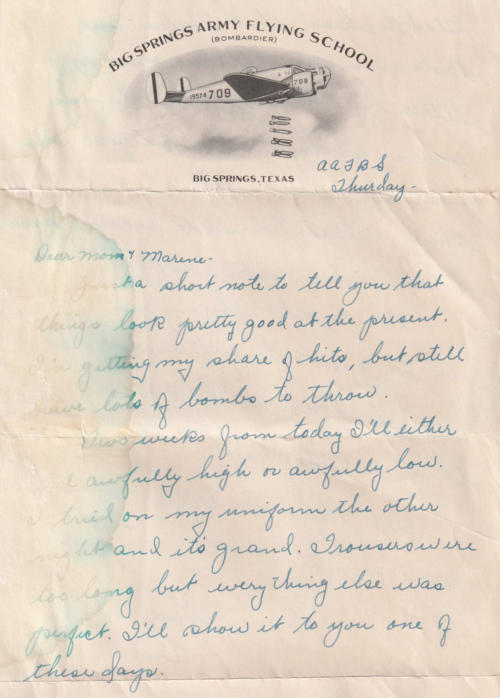 BIG SPRINGS ARMY FLYING SCHOOL
(BOMBARDIER)
19574 709
709
BIG SPRINGS, TEXAS
AAFBS
Thurday-
Dear Mom & Marene-
Just a short note to tell you that
things look pretty good at the present.
I'm getting my share of hits, but still
have lots of bombs to throw.
Two weeks from today I'll either
awfully high or awfully low.
I tried on my uniform the other
night and it's grand. Trousers were
too long but everything else was
perfect. I'll show it to you one of
these days.